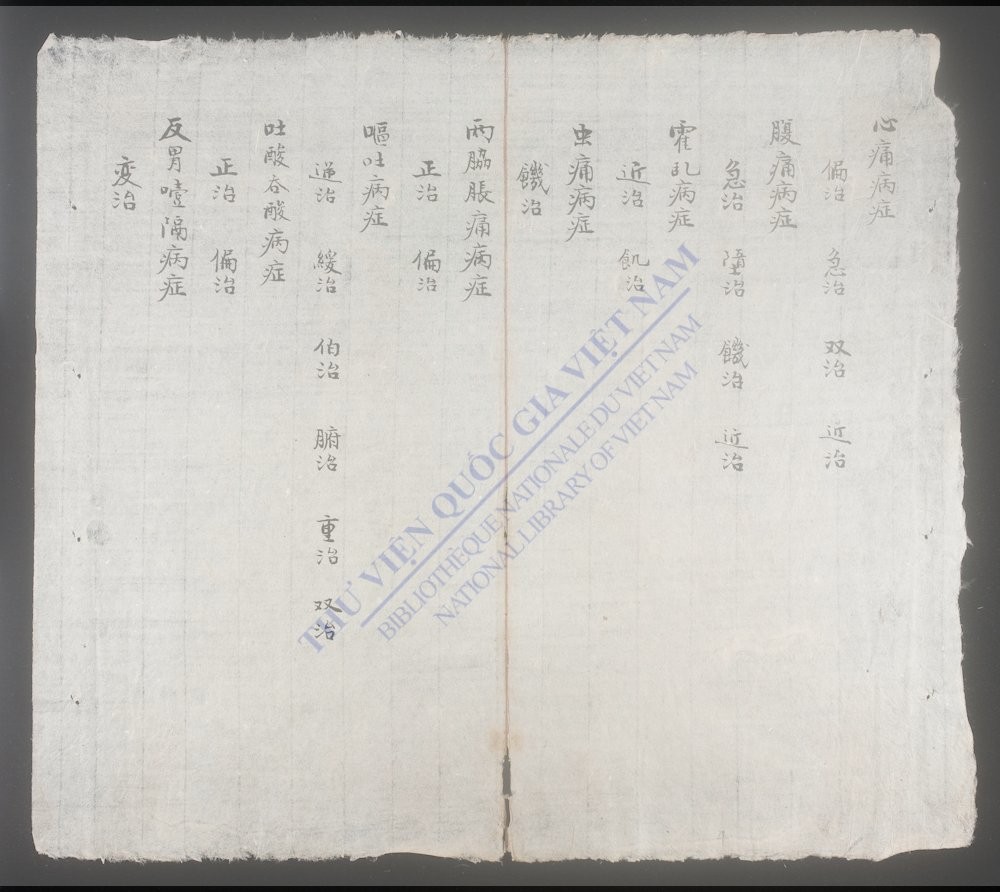 心痛病症
偏治 急治 双治 近治
腹痛病症
急治 墮治 饑治 近治
霍乱病症
近治 飢治
虫痛病症
饑治
両脇脹痛病症
正治 偏治
嘔吐病症
逆治 緩治 伯治 腑治 重治 双治
吐酸吞酸病症
正治 偏治
反胃噎隔病症
変治
THƯ VIỆN QUỐC GIA VIỆT NAM
BIBLIOTHÈQUE NATIONALE DU VIETNAM
NATIONAL LIBRARY OF VIETNAM